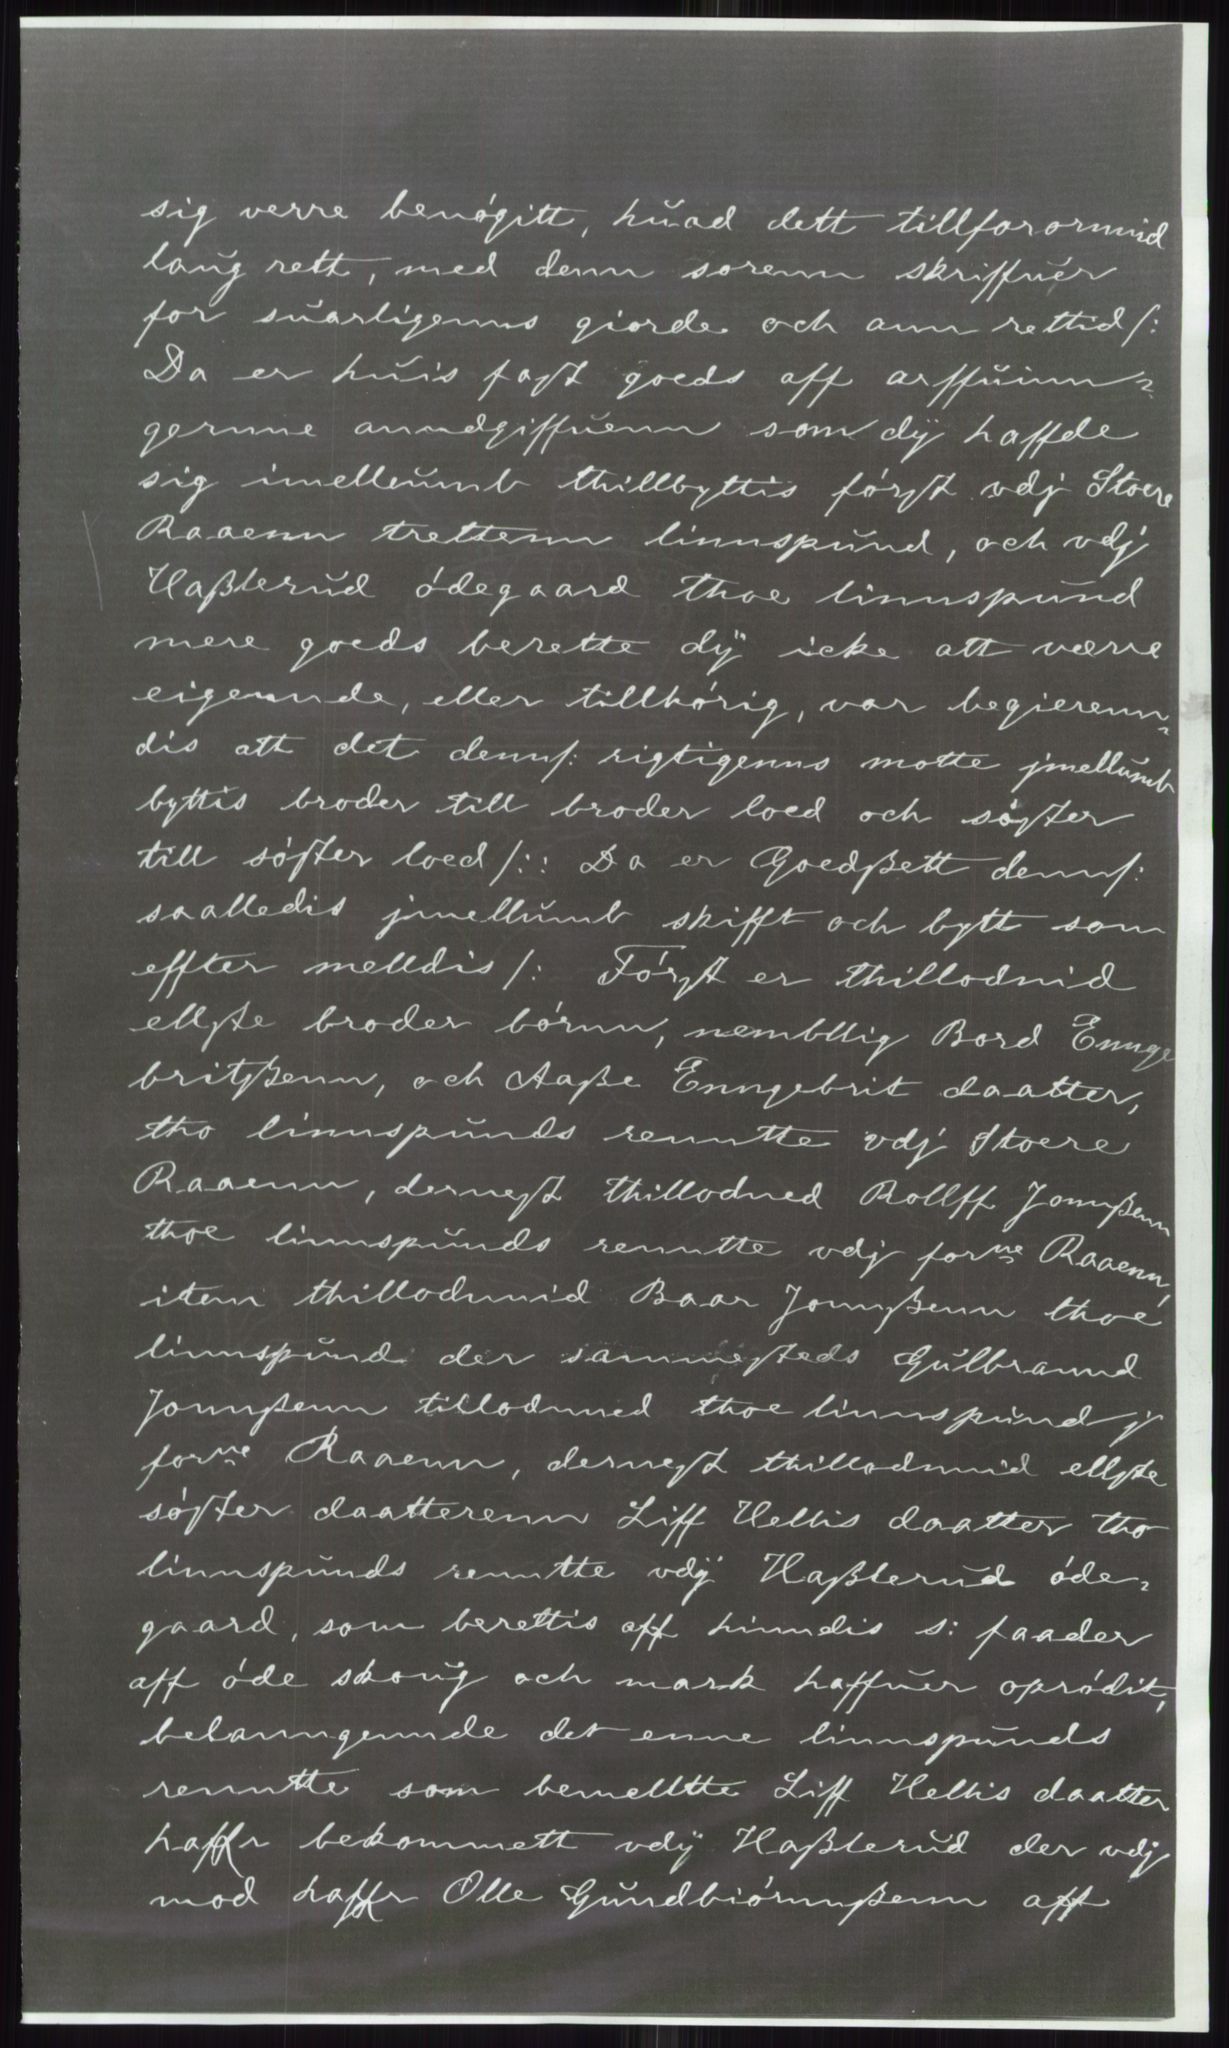 sig verre benøgitt, huad dett tillforormid
laug rett, med denn sorenn skriffuer
for suarligenns giorde och ann rettid /:
Da er huis fast goeds aff arffuinn=
gernne anndgiffuenn som dÿ haffde
sig imellumb thillbyttis først vdj Stoere
Raaenn trettenn linnspund, och vdj
Haßlerud ødegaard thoe linnspund
mere goeds berette dÿ icke att værre
eigennde, eller tillhørig, var begierenn=
dis att det denn/: rigtigenns motte jmellumb
byttis broder till broder loed och søster
till søster loed /:: Da er Goedßett denn/:
saalledis jmellumb skifft och bytt som
effter melldis /: Først er thillodnid
ellste broder børnn, nembllig Bord Ennge
britßenn, och Aaße Enngebrit daatter,
tho linnspunds renntte vdj Stoere
Raaenn, dernest thillodned Rollff Jonnßenn
thoe linnspunds renntte vdj forne Raaenn,
item thillodnnid Baar Jonnßenn thoe
linnspund der sammesteds Gulbrannd
Jonnßenn tillodnned thoe linnspund j
forne Raaenn, dernest thillodnnid ellste
søster daatterenn Liff Hellis daatter tho
linnspunds renntte vdÿ Haßlerud øde=
gaard, som berettis aff hinndis s: faader
aff øde skoug och mark haffuer oprødit,
belanngennde det enne linnspunds
renntte som bemellte Liff Hellis daatter
haffr bekommett vdÿ Haßlerud der vdj
mod haffr Olle Gundbiørnnßenn aff